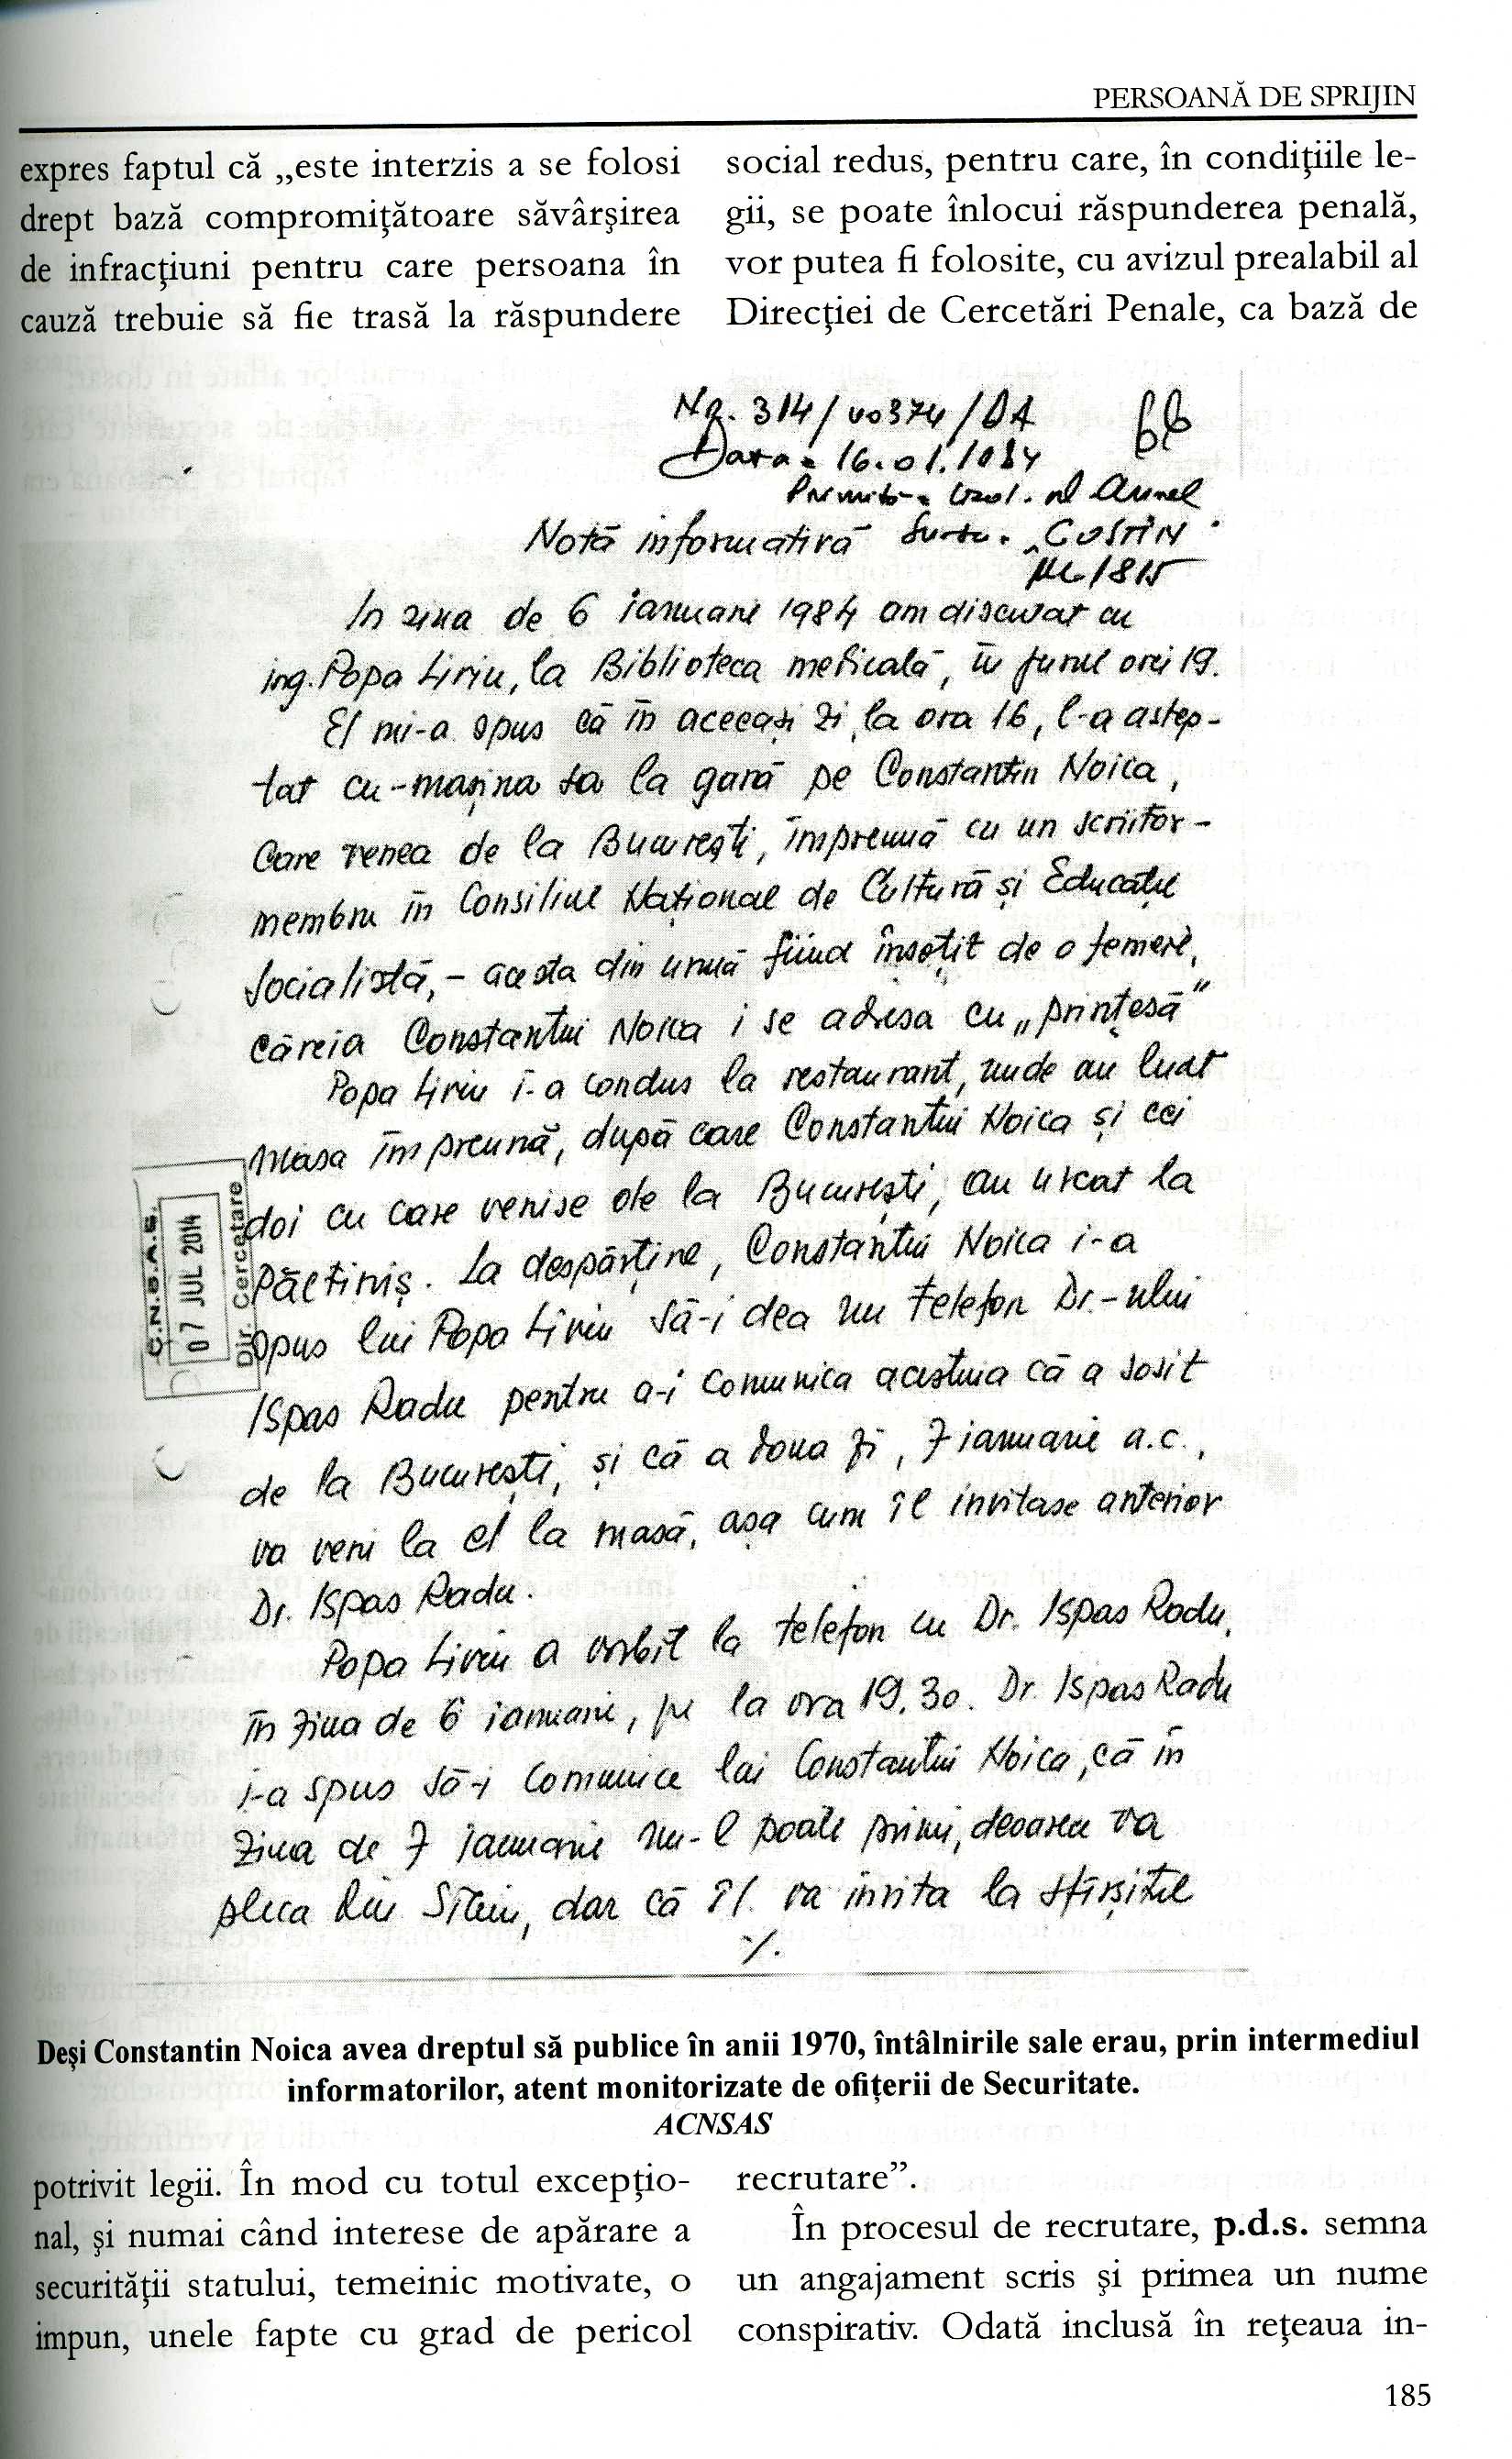 PERSOANĂ DE SPRIJIN
expres faptul că „este interzis a se folosi
drept bază compromiţătoare săvârşirea
de infracţiuni pentru care persoana în
cauză trebuie să fie trasă la răspundere
social redus, pentru care, în condiţiile le-
gii, se poate înlocui răspunderea penală,
vor putea fi folosite, cu avizul prealabil al
Direcţiei de Cercetări Penale, ca bază de
Nr. 314/
Data: 16.01.1984
Aurel
Notă informativă „COSTIN"
In ziua de 6 ianuarie 1984 am discutat cu
ing. Popa Liviu, la Biblioteca medicală, în jurul orei 19.
El mi-a spus că în aceeași zi, la ora 16, l-a aștep-
tat cu mașina sa la gară pe Constantin Noica,
care venea de la București, împreună cu un scriitor -
membru în Consiliul Național de Cultură și Educație
Socialistă, - acesta din urmă fiind însoțit de o femeie,
căreia Constantin Noica i se adresa cu „prințesă"
Popa Liviu i-a condus la restaurant, unde au luat
masa împreună, după care Constantin Noica și cei
doi cu care venise de la București, au urcat la
Păltiniș. La despărțire, Constantin Noica i-a
spus lui Popa Liviu să-i dea un telefon Dr.-ului
Ispas Radu pentru a-i comunica acestuia că a sosit
de la București, și că a doua zi, 7 ianuarie a.c.,
va veni la el la masă, așa cum îl invitase anterior
Dr. Ispas Radu.
Popa Liviu a vorbit la telefon cu Dr. Ispas Radu,
în ziua de 6 ianuarie, pe la ora 19.30. Dr. Ispas Radu
i-a spus să-i comunice lui Constantin Noica, că în
ziua de 7 ianuarie nu-l poate primi, deoarece va
pleca din Sibiu, dar că îl va invita la sfîrșitul
·/.
C.N.S.A.S.
07 JUL 2014
Dir. Cercetare
Deşi Constantin Noica avea dreptul să publice în anii 1970, întâlnirile sale erau, prin intermediul
informatorilor, atent monitorizate de ofiţerii de Securitate.
ACNSAS
potrivit legii. În mod cu totul excepţio-
nal, şi numai când interese de apărare a
securităţii statului, temeinic motivate, o
impun, unele fapte cu grad de pericol
recrutare”.
În procesul de recrutare, p.d.s. semna
un angajament scris şi primea un nume
conspirativ. Odată inclusă în reţeaua in-
185